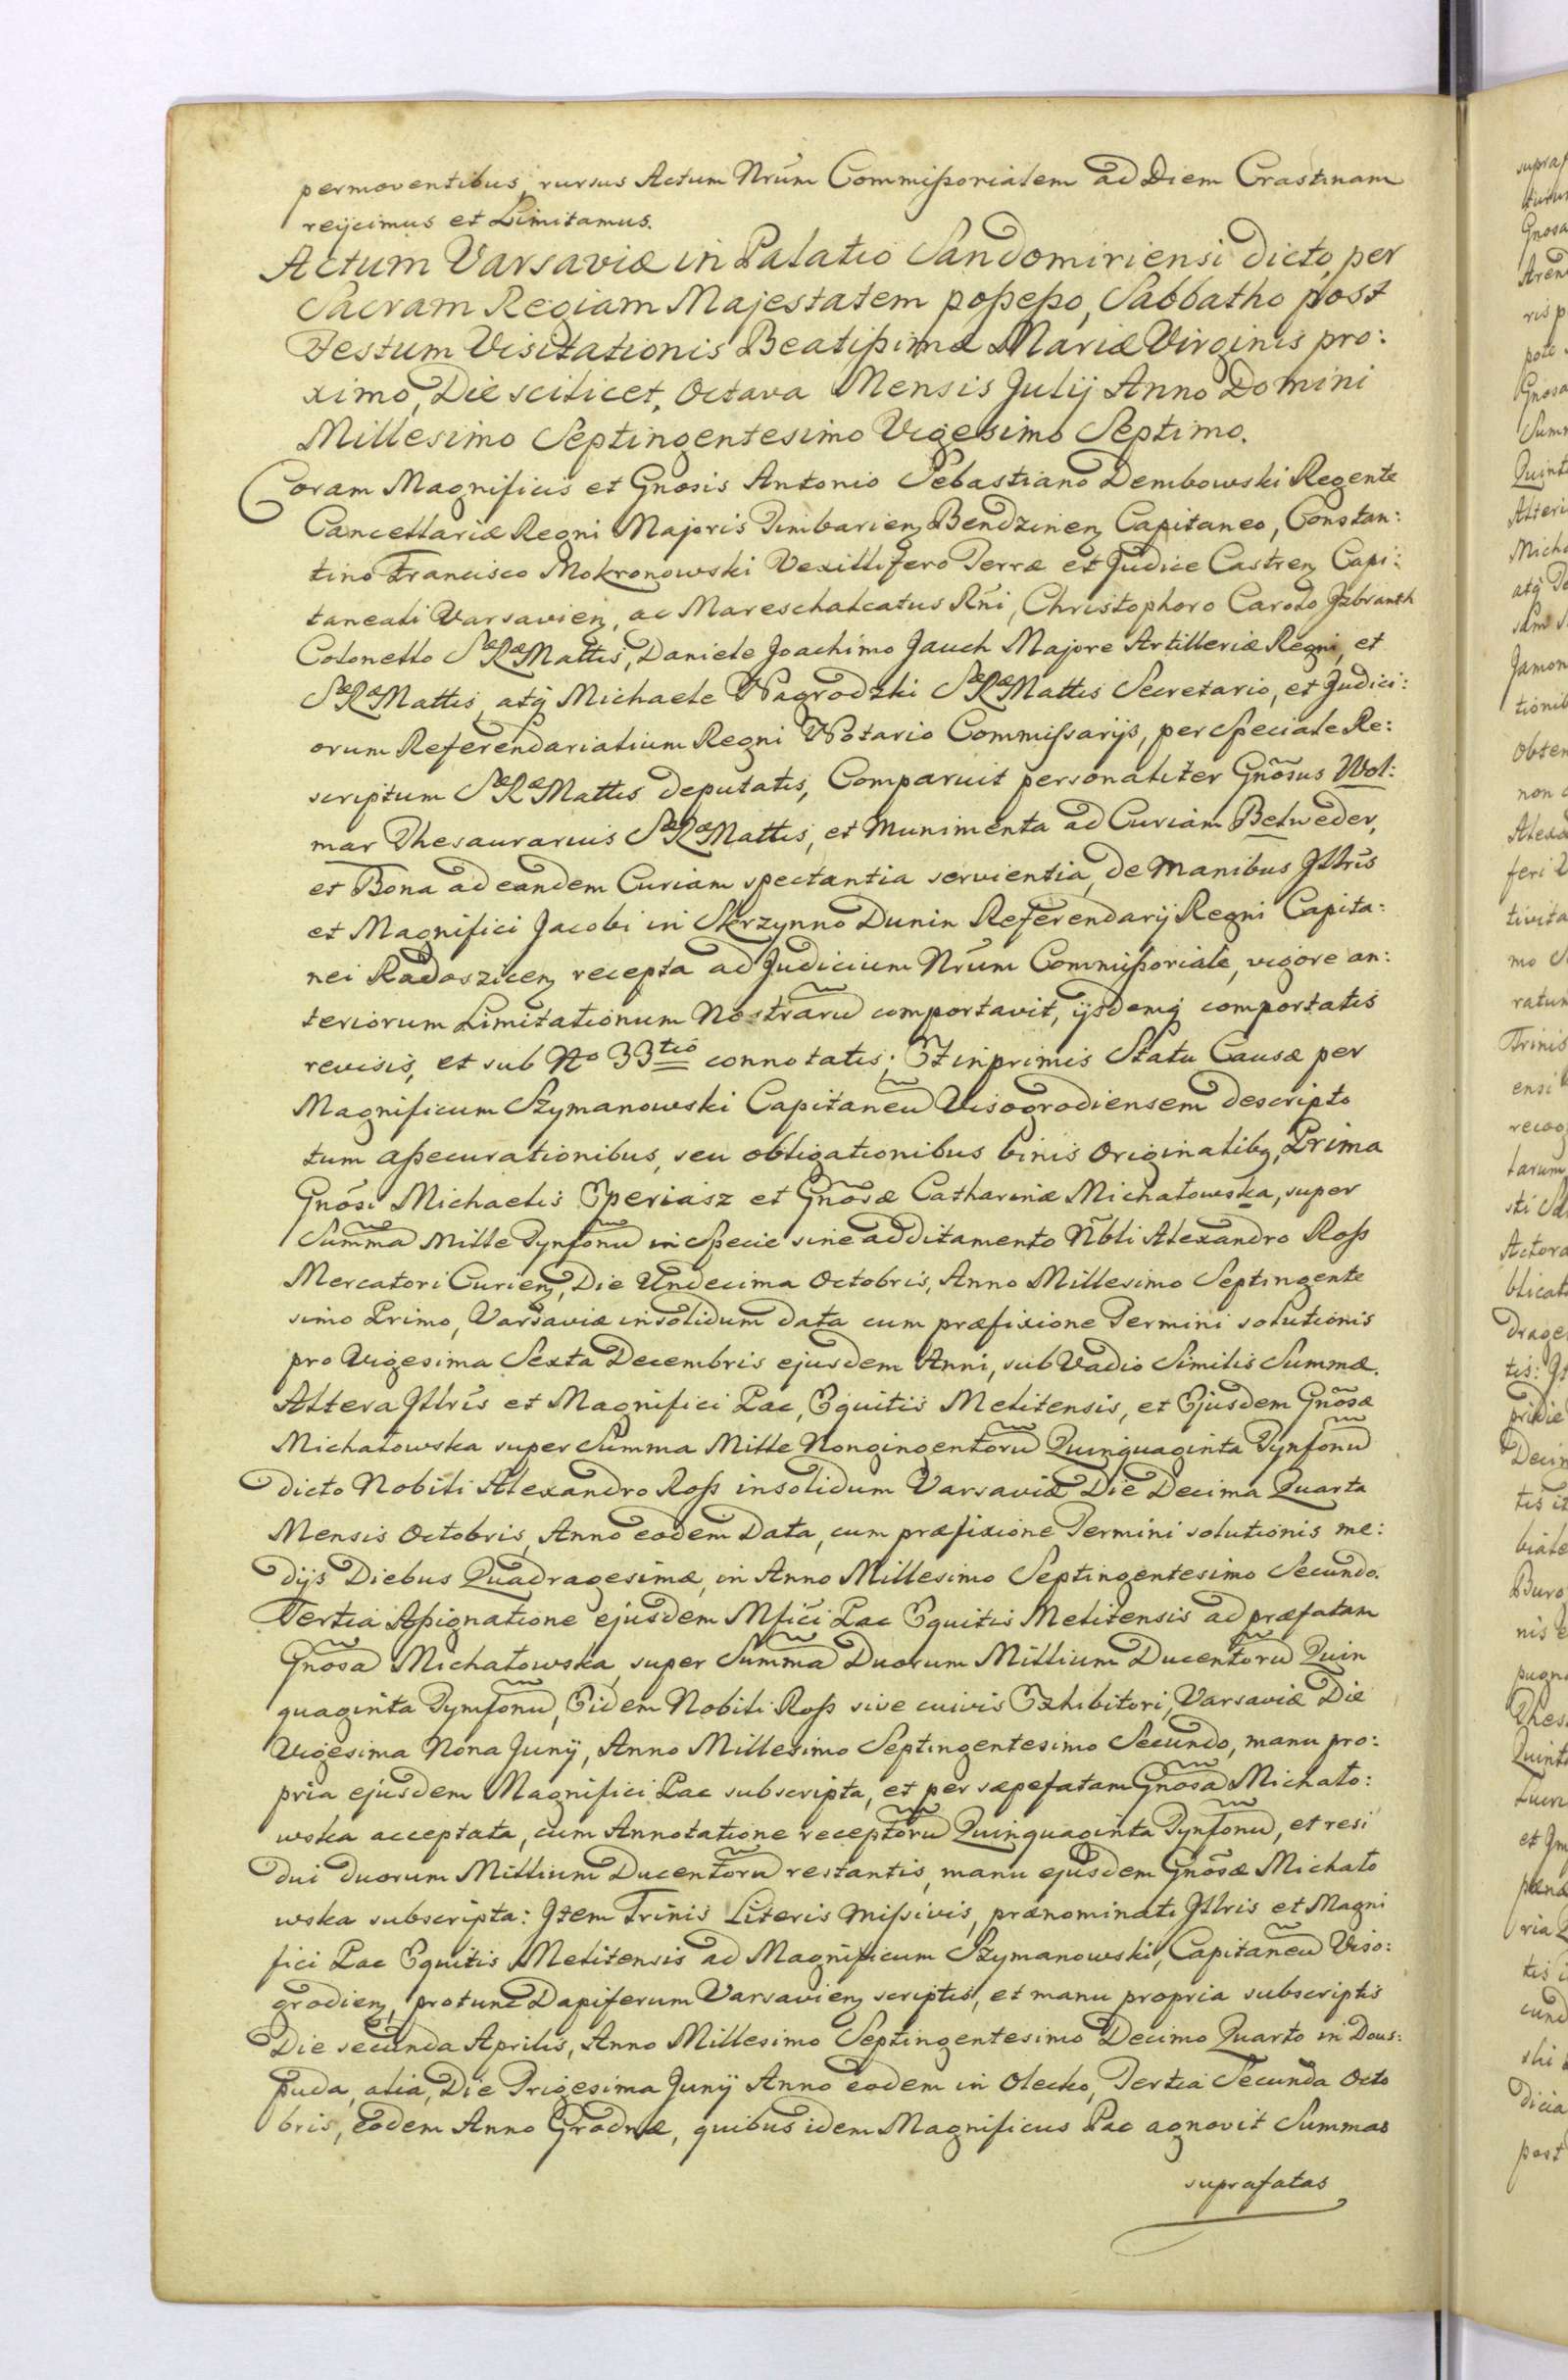 permoventibus, rursus Actum Nrũm Commißorialem ad Diem Crastinam
reijcimus et Limitamus.
Actum Varsaviæ in Palatio Sandomiriensi dicto, per
Sacram Regiam Majestatem poßeßo, Sabbatho post
Festum Visitationis Beatißimæ Mariæ Virginis pro:
ximo, Die scilicet, Octava Mensis Julij Anno Domini
Millesimo Septingentesimo Vigesimo Septimo.
Coram Magnificis et Gnosis Antonio Sebastiano Dembowski Regente
Cancellariæ Regni Majoris Timbarien̨ Bendzinen̨ Capitaneo, Constan:
tino Francisco Mokronowski Vexillifero Terræ et Judice Castren̨ Capi:
taneali Varsavien̨, ac Mareschalcatus Rñi, Christophoro Carolo Jzbranth
Colonello SæRæMattis, Daniele Joachimo Jauch Majore Artilleriæ Regni, et
SæRæMattis, atq̃ Michaele Nagrodzki SæRæMattis Secretario, et Judici:
orum Referendarialium Regni Notario Commißarijs, per Speciale Re:
scriptum SæRæMattis deputatis, Comparuit personaliter Gñosus Wol:
mar Thesaurarius SæRæMattis, et Munimenta ad Curiam Belweder,
et Bona ad eandem Curiam spectantia servientia, de Manibus Jllrĩs
et Magnifici Jacobi in Skrzynno Dunin Referendarij Regni Capita:
nei Radoszicen̨ recepta ad Judicium Nrũm Commißoriale, vigore an:
teriorum Limitationum Nostrarũ comportavit, ijsdemq̃ comportatis
revisis, et sub No 33tio connotatis; Et inprimis Statu Causæ per
Magnificum Szymanowski Capitaneũ Visogrodiensem descripto
tum aßecurationibus, seu obligationibus binis Originalibq, Prima
Gnõsi Michaelis Eperiasz et Gnõsæ Catharinæ Michałowska, super
Summã Mille Tynfonũ in Specie sine additamento Ñbli Alexandro Roß
Mercatori Curien̨, Die Undecima Octobris, Anno Millesimo Septingente
simo Primo, Varsaviæ insolidum data cum præfixione Termini solutionis
pro Vigesima Sexta Decembris ejusdem Anni, sub Vadio Similis Summæ.
Altera Jllrĩs et Magnifici Pac, Equitis Melitensis, et Ejusdem Gñosæ
Michałowska super Summa Mille Nongingentorũ Quinquaginta Tynfonũ
dicto Nobili Alexandro Roß insolidum Varsaviæ Die Decima Quarta
Mensis Octobris, Anno eodem Data, cum præfixione Termini solutionis me:
dijs Diebus Quadragesimæ, in Anno Millesimo Septingentesimo Secundo.
Tertia Aßignatione ejusdem Mficĩ Pac Equitis Melitensis ad præfatam
Gnosã Michałowska, super Summã Duorum Millium Ducentorũ Quin
quaginta Tymfonũ, Eidem Nobili Roß sive cuivis Exhibitori, Varsaviæ Die
Vigesima Nona Junij, Anno Millesimo Septingentesimo Secundo, manu pro:
pria ejusdem Magnifici Pac subscripta, et per sæpefatam Gnosã Michało:
wska acceptata, cum Annotatione receptorũ Quinquaginta Tynfonũ, et resi
dui duorum Millium Ducentorũ restantis, manu ejusdem Gnõsæ Michało
wska subscripta: Jtem Trinis Literis Mißivis, prænominati Jllris et Magni
fici Pac Equitis Melitensis ad Magnificum Szymanowski, Capitaneũ Viso:
grodien̨, protunc Dapiferum Varsavien̨ scriptis, et manu propria subscriptis
Die secunda Aprilis, Anno Millesimo Septingentesimo Decimo Quarto in Dous:
puda, alia, Die Trigesima Junij Anno eodem in Olecko, Tertia Secunda Octo
bris, Eodem Anno Grodnæ, quibus idem Magnificus Pac agnovit Summas
suprafatas